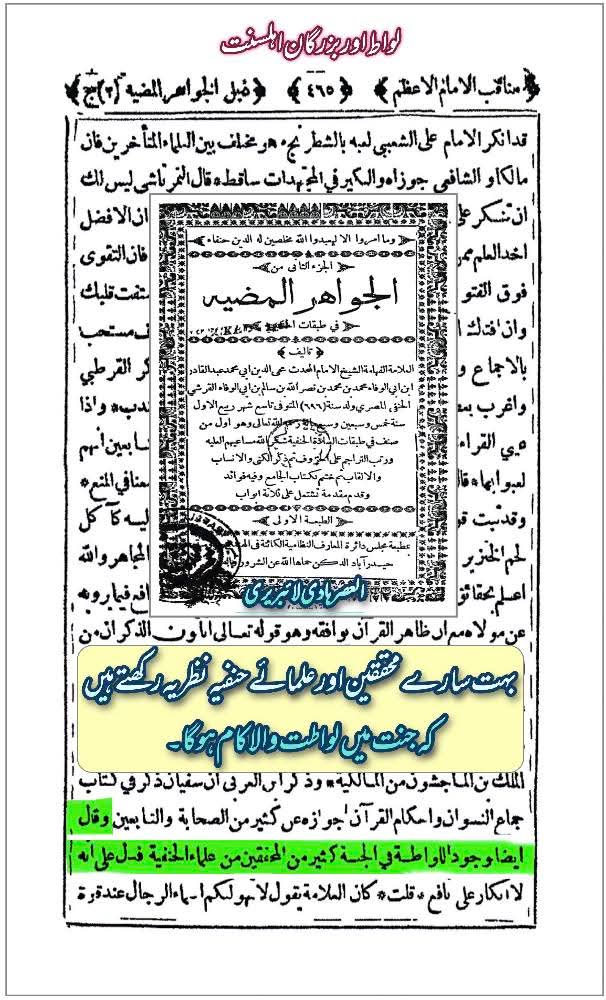 لواط اور بزرگان اہلسنت
﴿مناقب الامام الاعظم﴾ ﴿٤٦٥﴾ ﴿ذیل الجواهر المضیه (٢) ج﴾
قد انكر الامام على الشعبي لعبه بالشطرنج وهو مختلف بين العلماء المتأخرين فان
مالكا و الشافعي جوزاه والنكير في المجتهدات ساقط * قال التمرتاشي ليس لك
ان تنكر على
ان الافضل
اخذ العلم ممن
فان التقوى
فوق الفتو
ستفت قلبك
وان افتاك
ف مستحب
بالاجماع و
كر القرطبي
واغرب بعض
ندب * واذا
في القراء
نابعين انهم
لعبوا بها * قا
معنا في المنع *
وقد ثبت
ليسه كآ كل
لحم الخنزير
المجاهر والله
اعلم بحقائق
فه فيما روه
وما امروا الا ليعبدوا الله مخلصين له الدين حنفاء
الجزء الثانى من
الجواهر المضيه
في طبقات الحنفية
﴿تاليف﴾
العلامة الفهامة الشيخ الامام المحدث محى الدين ابي محمد عبد القادر
ابن ابي الوفاء محمد بن محمد بن نصر الله بن سالم بن ابي الوفاء القرشي
الحنفي المصري ولد سنة (٦٩٦) المتوفى تاسع شهر ربيع الاول
سنة خمس وسبعين وسبعمائة رحمه الله تعالى وهو اول من
صنف في طبقات السادة الحنفية شكر الله مساعيهم العليه
ورتب التراجم على الحروف ثم ذكر الكنى والانساب
والالقاب ثم ختم بكتاب الجامع وفيه فوائد
وقدم مقدمة تشتمل على ثلاثة ابواب
الطبعة الاولى
بمطبعة مجلس دائرة المعارف النظامية الكائنة في الهند
حيدر آباد الدكن حماها الله عن الشرور
لائبریری
عن مولاه مع ان ظاهر القرآن يوافقه وهو قوله تعالى اتأتون الذكران من
بہت سارے محققین اور علمائے حنفیہ نظریہ رکھتے ہیں
کہ جنت میں لواطت والا کام ہوگا۔
الملك بن الماجشون من المالكية * وذكر ابن العربى ان سفيان ذكر في كتاب
جماع النسوان واحكام القرآن جوازه عن كثير من الصحابة والتابعين وقال
ايضا وجود اللواطة في الجنة كثير من المحققين من علماء الحنفية فدل على انه
لا انكار على نافع * قلت * كان العلامة يقول لا يهولنكم اسماء الرجال عند قرة